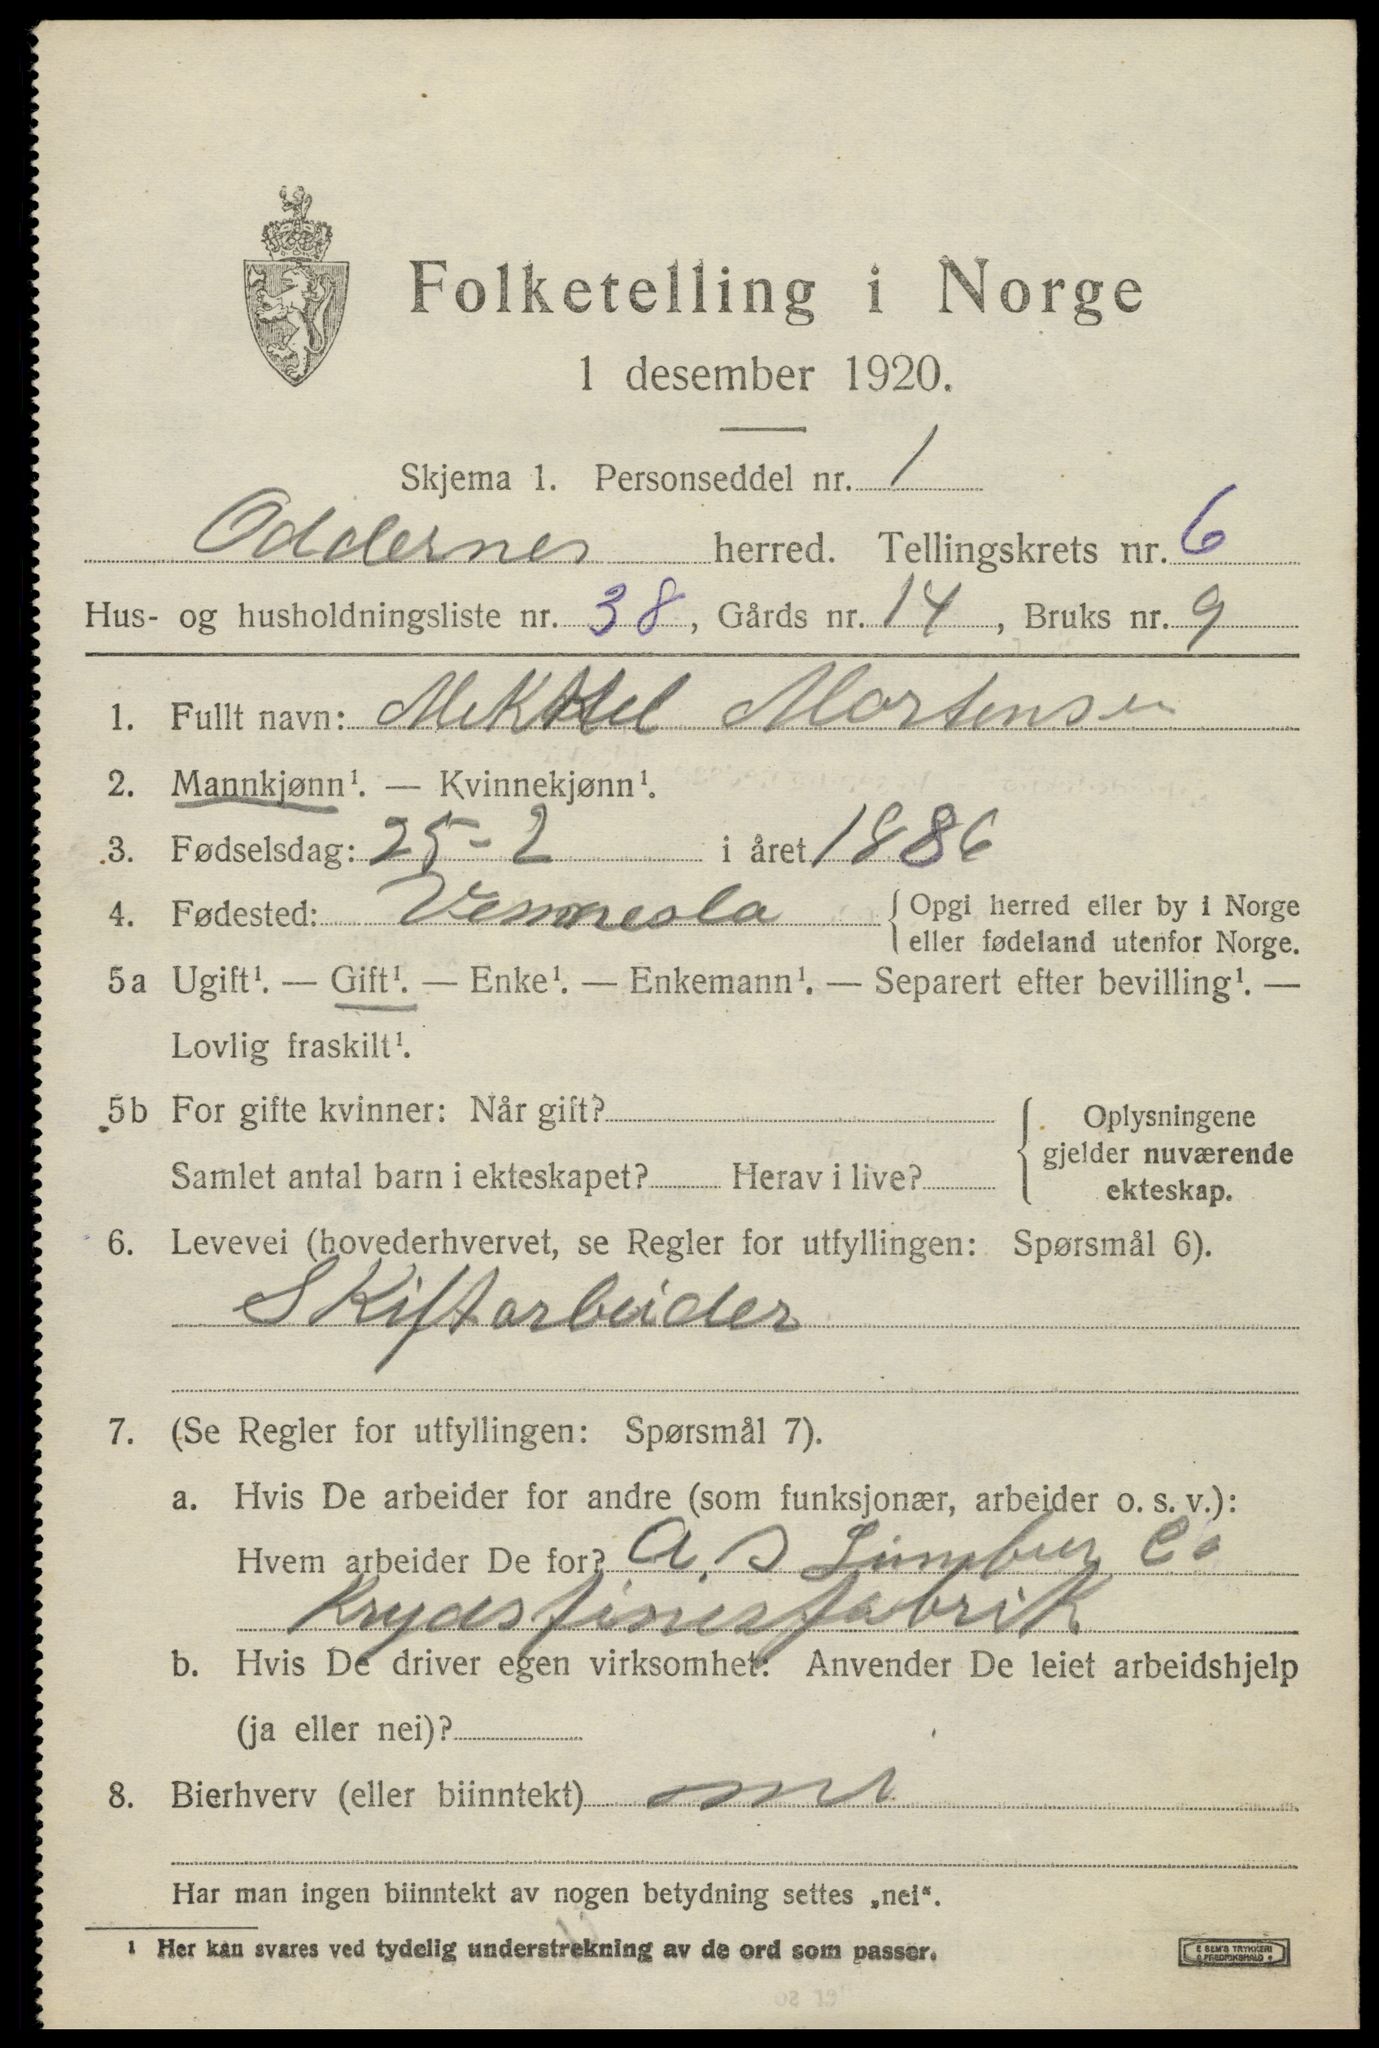 Folketelling i Norge
1 desember 1920.
Skjema 1. Personseddel nr. 1
Oddernes herred. Tellingskrets nr. 6
Hus- og husholdningsliste nr. 38, Gårds nr. 14, Bruks nr. 9
1. Fullt navn: Mortensen
2. Mannkjønn¹. — Kvinnekjønn¹.
3. Fødselsdag: 25-2 i året 1886
4. Fødested: Vennesla {Opgi herred eller by i Norge
eller fødeland utenfor Norge.
5a Ugift¹. — Gift¹. — Enke¹. — Enkemann¹. — Separert efter bevilling¹. —
Lovlig fraskilt¹.
5b For gifte kvinner: Når gift?
Samlet antal barn i ekteskapet? Herav i live?
Oplysningene
gjelder nuværende
ekteskap.
6. Levevei (hovederhvervet, se Regler for utfyllingen: Spørsmål 6).
Skiftarbeider
7. (Se Regler for utfyllingen: Spørsmål 7).
a. Hvis De arbeider for andre (som funksjonær, arbeider o. s. v.):
Hvem arbeider De for? A. S Co
Krydsfinerfabrik
b. Hvis De driver egen virksomhet: Anvender De leiet arbeidshjelp
(ja eller nei)?
8. Bierhverv (eller biinntekt) nei
Har man ingen biinntekt av nogen betydning settes „nei“.
¹ Her kan svares ved tydelig understrekning av de ord som passer.
E SEM'S TRYKKERI
FREDRIKSHALD